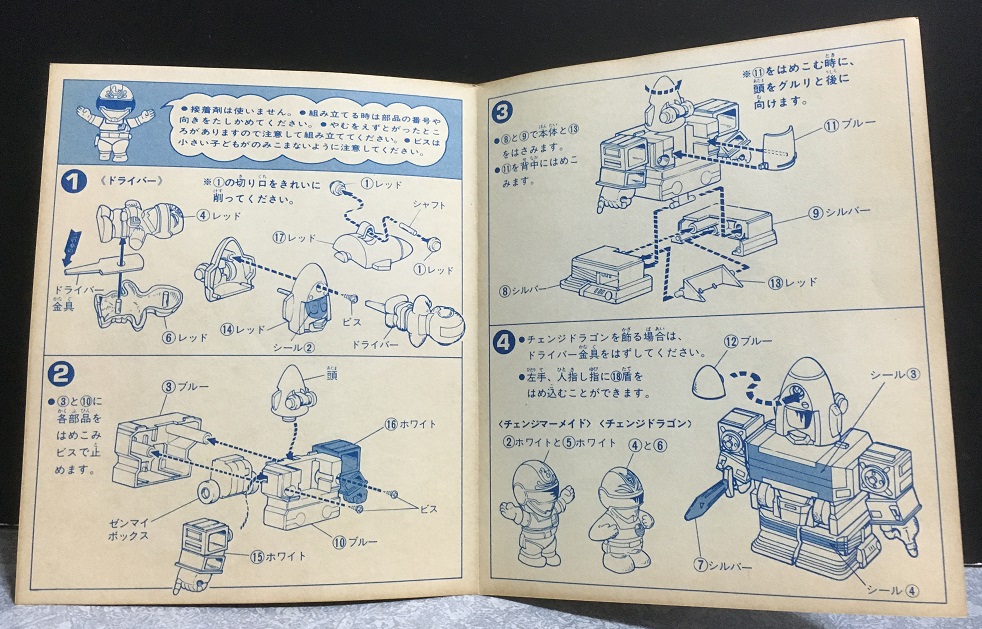 ●接着剤は使いません。●組み立てる時は部品の番号や
向きをたしかめてください。●やむをえずとがったとこ
ろがありますので注意して組み立ててください。●ビスは
小さい子どもがのみこまないように注意してください。
1
《ドライバー》
※①の切り口をきれいに
削ってください。
①レッド
シャフト
④レッド
⑰レッド
①レッド
ドライバー
金具
⑥レッド
⑭レッド
シール②
ビス
ドライバー
2
●③と⑩に
各部品を
はめこみ
ビスで止
めます。
③ブルー
頭
⑯ホワイト
ビス
ゼンマイ
ボックス
⑩ブルー
⑮ホワイト
3
※⑪をはめこむ時に、
頭をグルリと後に
向けます。
●⑧と⑨で本体と⑬
をはさみます。
●⑪を背中にはめこ
みます。
⑪ブルー
⑨シルバー
⑧シルバー
⑬レッド
4
●チェンジドラゴンを飾る場合は、
ドライバー金具をはずしてください。
●左手、人指し指に⑱盾を
はめ込むことができます。
⑫ブルー
シール③
〈チェンジマーメイド〉
〈チェンジドラゴン〉
②ホワイトと⑤ホワイト
④と⑥
⑦シルバー
シール④